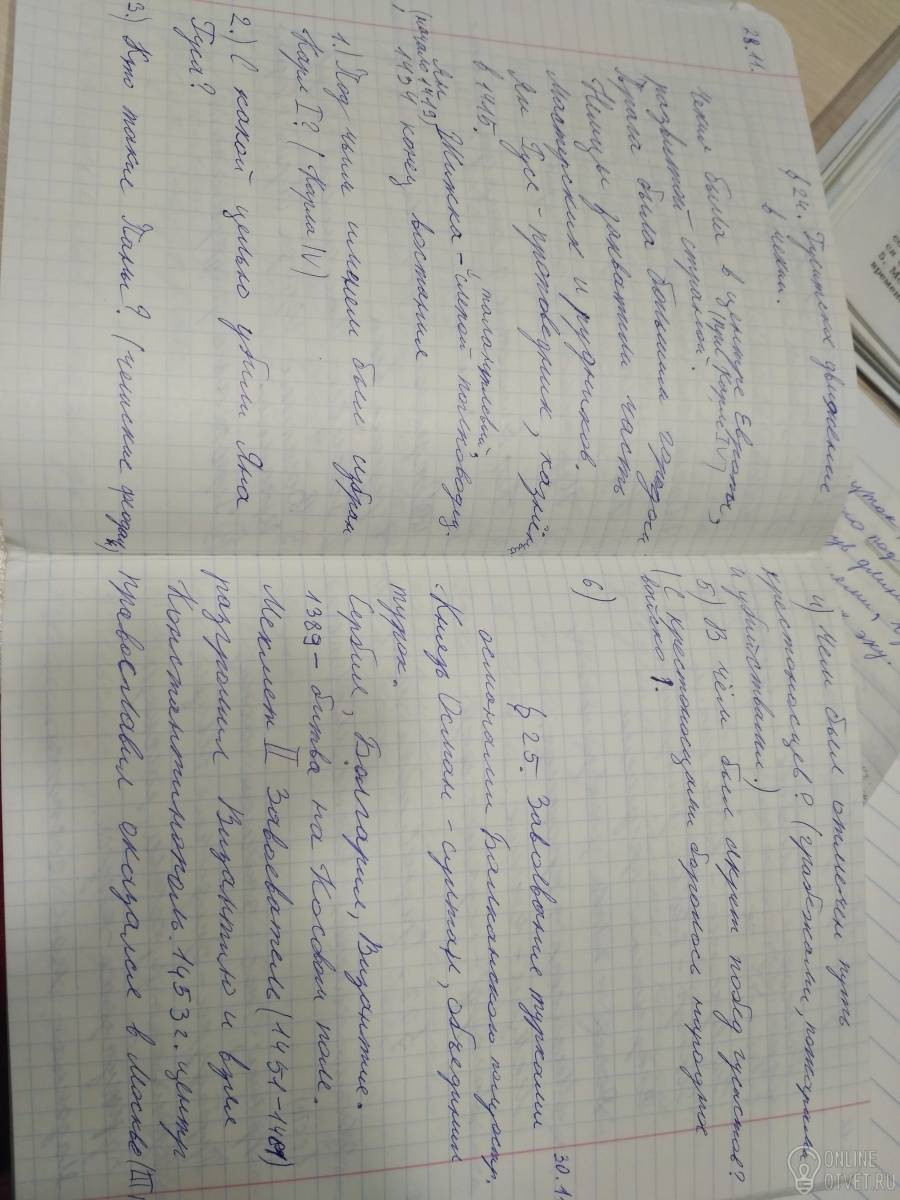 28.11.
§ 24. Гуситское движение
в Чехии.
Чехия была в центре Европы,
развитой страной. (при Карле IV)
Прага была большим городом.
Немцы захватили часть
мастерских и рудников.
Ян Гус - проповедник, казнён
в 1415.
талантливый
Ян Жижка - "слепой полководец"
(начало 1419)
1434 конец востания
1.) Под чьим именем был избран
Карл I? (Карла IV)
2.) С какой целью убили Яна
Гуса?
3.) Кто такие Паны? (чешские феодалы)
4) Чем был отмечен путь
крестоносцев? (грабежами, пожарами
и убийствами.)
5) В чём был секрет побед гуситов?
(С крестоносцами боролось народное
войско).
6)
30.1
§ 25. Завоевание турками
османами Балканского полуостр.
Князь Осман - султан, объединил
турок.
Сербия, Болгария, Византия.
1389 - битва на Косовом поле.
Мехмет II Завоеватель (1451-1481)
разгромил Византию и взял
Константинополь. 1453 г. центр
православия оказался в Москве (III
ONLINE
OTVET.RU